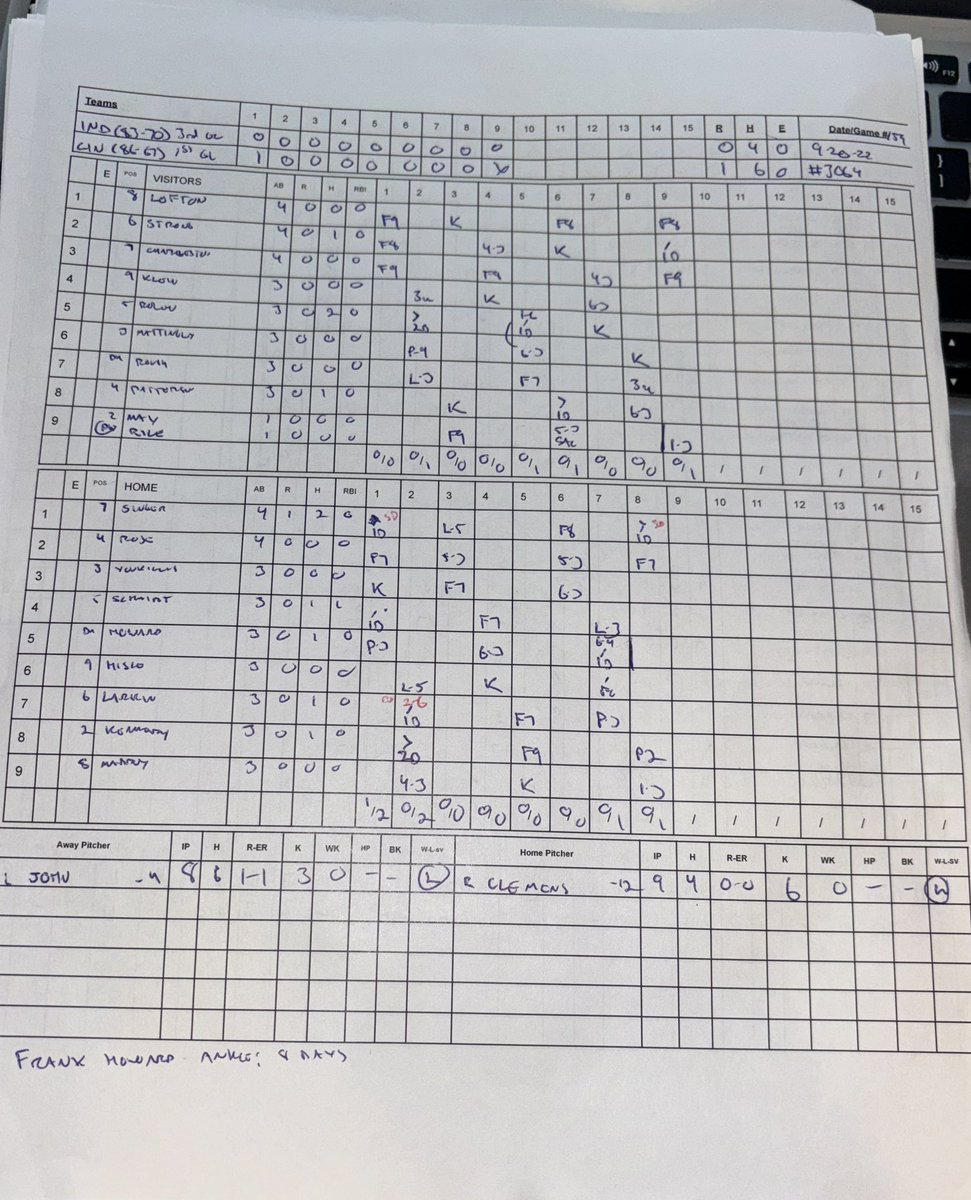 Teams 1 2 3 4 5 6 7 8 9 10 11 12 13 14 15 R H E Date/Game #159
IND (83-70) 3rd GL 0 0 0 0 0 0 0 0 0 0 4 0 9-20-22
CIN 1st GL 1 0 0 0 0 0 0 0 X 1 6 0 #3064
E POS VISITORS AB R H RBI 1 2 3 4 5 6 7 8 9 10 11 12 13 14 15
1 8 LOFTON 4 0 0 0 F9 K F8 F8
2 6 STRONG 4 0 1 0 F8 4-3 K 10
3 7 4 0 0 0 F9 F9 43 F9
4 9 KLEIN 3 0 0 0 3u K 63
5 5 ROLEN 3 0 2 0 20 10 K
6 3 MATTINGLY 3 0 0 0 P-4 6-3 K
7 DH 3 0 0 0 L-3 F7 3u
8 4 3 0 1 0 K 10 63
9 2 MAY 1 0 0 0 F9 5-3 SAC
PH RICE 1 0 0 0 1-3
0/0 0/1 0/0 0/0 0/1 0/1 0/0 0/0 0/1 / / / / / /
E POS HOME AB R H RBI 1 2 3 4 5 6 7 8 9 10 11 12 13 14 15
1 7 SINGER 4 1 2 0 10 L-5 F8 10
2 4 ROSE 4 0 0 0 P7 5-3 5-3 F7
3 3 3 0 0 0 K F7 6-3
4 5 SCHMIDT 3 0 1 1 10 F7 L-3
5 DH HOWARD 3 0 1 0 P-3 6-3 6-4 10
6 9 HISLE 3 0 0 0 L-5 K FC
7 6 LARKIN 3 0 1 0 26 10 F7 P-3
8 2 KENNEDY 3 0 1 0 20 F9 P2
9 8 3 0 0 0 4-3 K 1-3
1/2 0/2 0/0 0/0 0/0 0/0 0/1 0/1 / / / / / / /
Away Pitcher IP H R-ER K WK HP BK W-L-SV Home Pitcher IP H R-ER K WK HP BK W-L-SV
L JOHN -4 8 6 1-1 3 0 - - L R CLEMENS -12 9 4 0-0 6 0 - - W
FRANK HOWARD - ANKLE: 8 DAYS